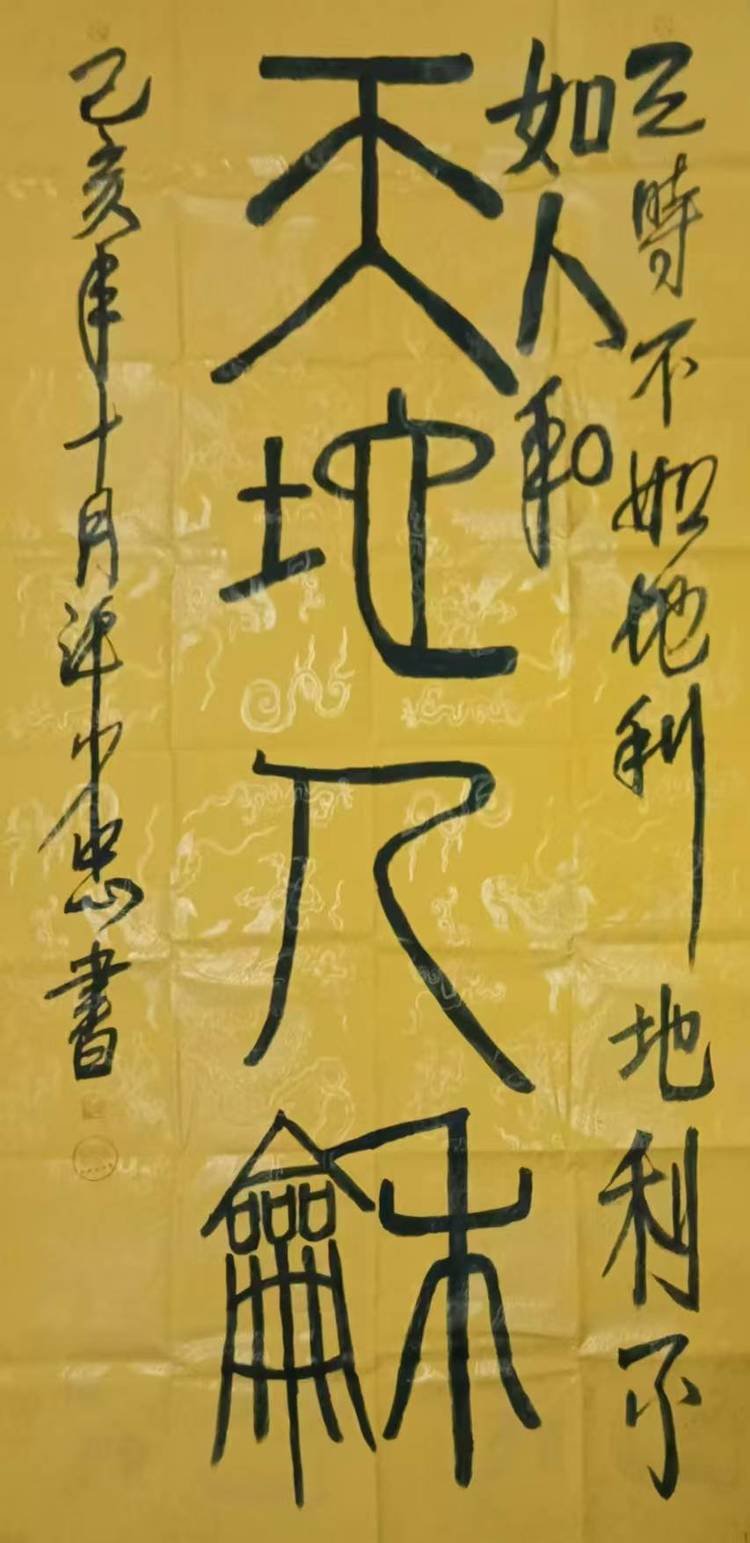 天時不如地利地利不
如人和
天地人龢
己亥年十月忠書